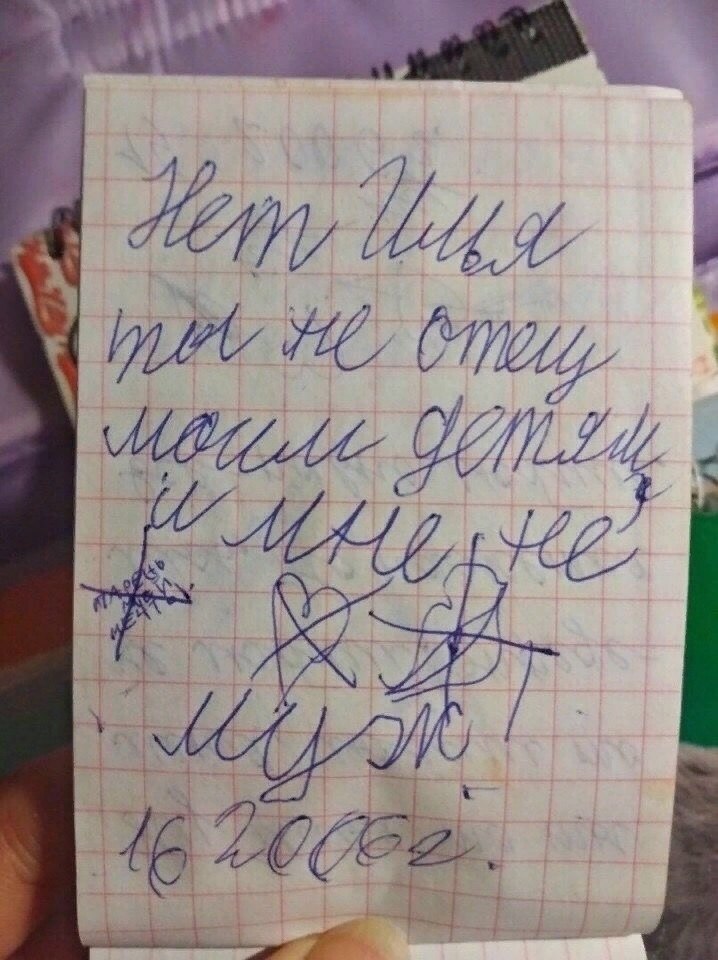 Нет Илья
ты не отец
моим детям,
и мне не
муж.
16 2006 г.